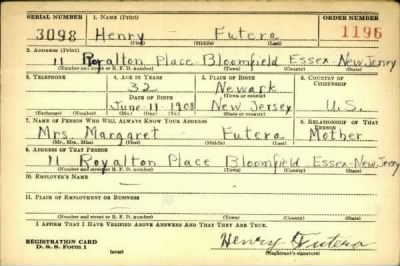 SERIAL NUMBER 1. NAME (Print) ORDER NUMBER
3098 Henry Futera 1196
(First) (Middle) (Last)
2. ADDRESS (Print)
11 Royalton Place Bloomfield Essex-New Jersey
(Number and street or R. F. D. number) (Town) (County) (State)
3. TELEPHONE 4. AGE IN YEARS 5. PLACE OF BIRTH 6. COUNTRY OF CITIZENSHIP
32 Newark
DATE OF BIRTH (Town or county)
June-11-1908 New Jersey U.S.
(Exchange) (Number) (Mo.) (Day) (Yr.) (State or country)
7. NAME OF PERSON WHO WILL ALWAYS KNOW YOUR ADDRESS 8. RELATIONSHIP OF THAT PERSON
Mrs. Margaret - Futera Mother
(Mr., Mrs., Miss) (First) (Middle) (Last)
9. ADDRESS OF THAT PERSON
11 Royalton Place Bloomfield Essex-New Jersey
(Number and street or R. F. D. number) (Town) (County) (State)
10. EMPLOYER'S NAME
-
11. PLACE OF EMPLOYMENT OR BUSINESS
-
(Number and street or R. F. D. number) (Town) (County) (State)
I AFFIRM THAT I HAVE VERIFIED ABOVE ANSWERS AND THAT THEY ARE TRUE.
REGISTRATION CARD
D. S. S. Form 1 (over) Henry Futera
(Registrant's signature)